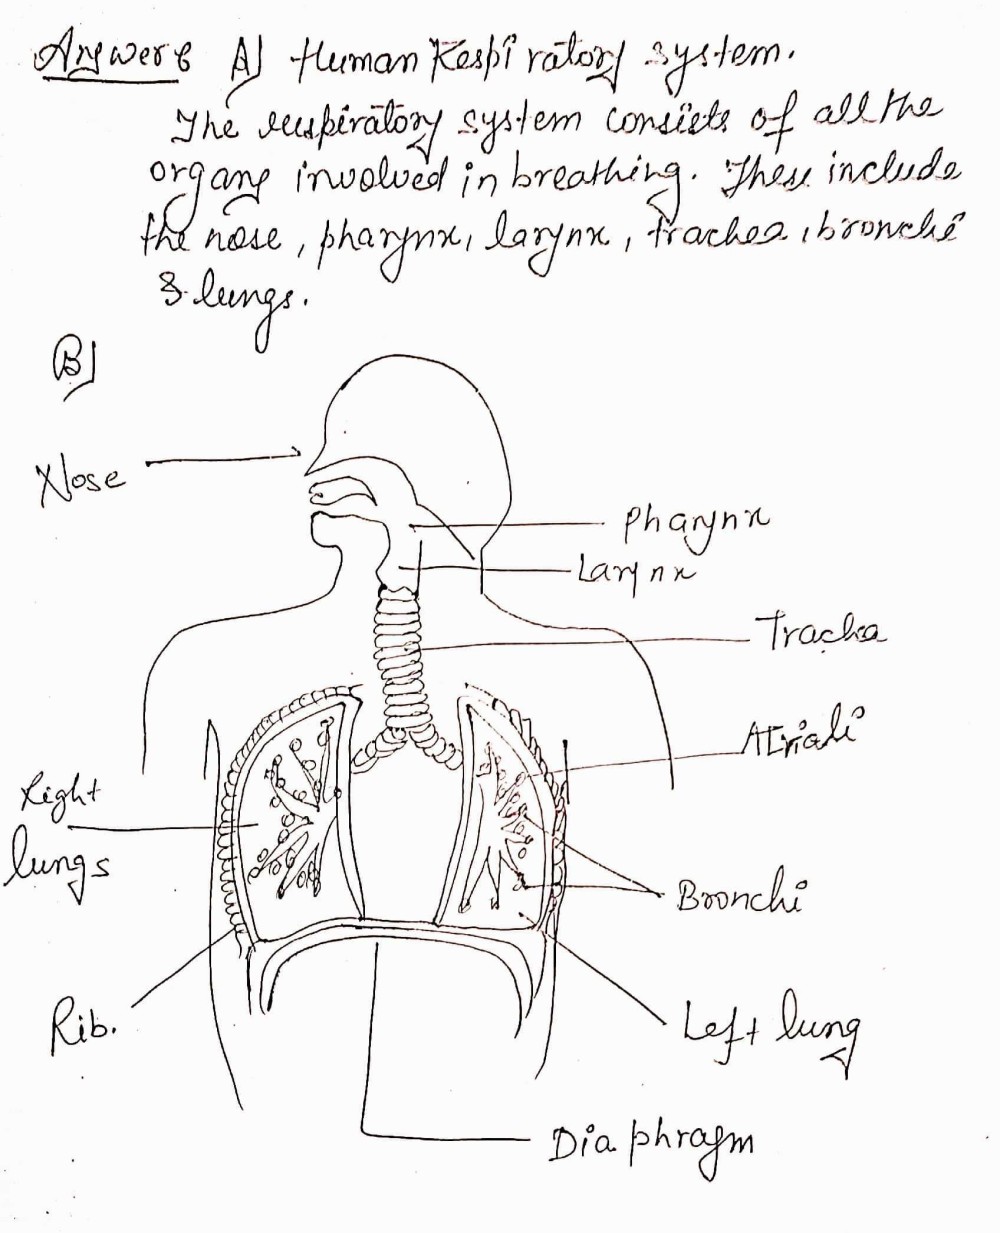 Answer 6 A) Human Respiratory system.
The respiratory system consists of all the
organs involved in breathing. These include
the nose, pharynx, larynx, trachea, bronchi
& lungs.
B)
Nose
Pharynx
Larynx
Tracha
Right
lungs
Bronchi
Rib.
Left lung
Diaphragm